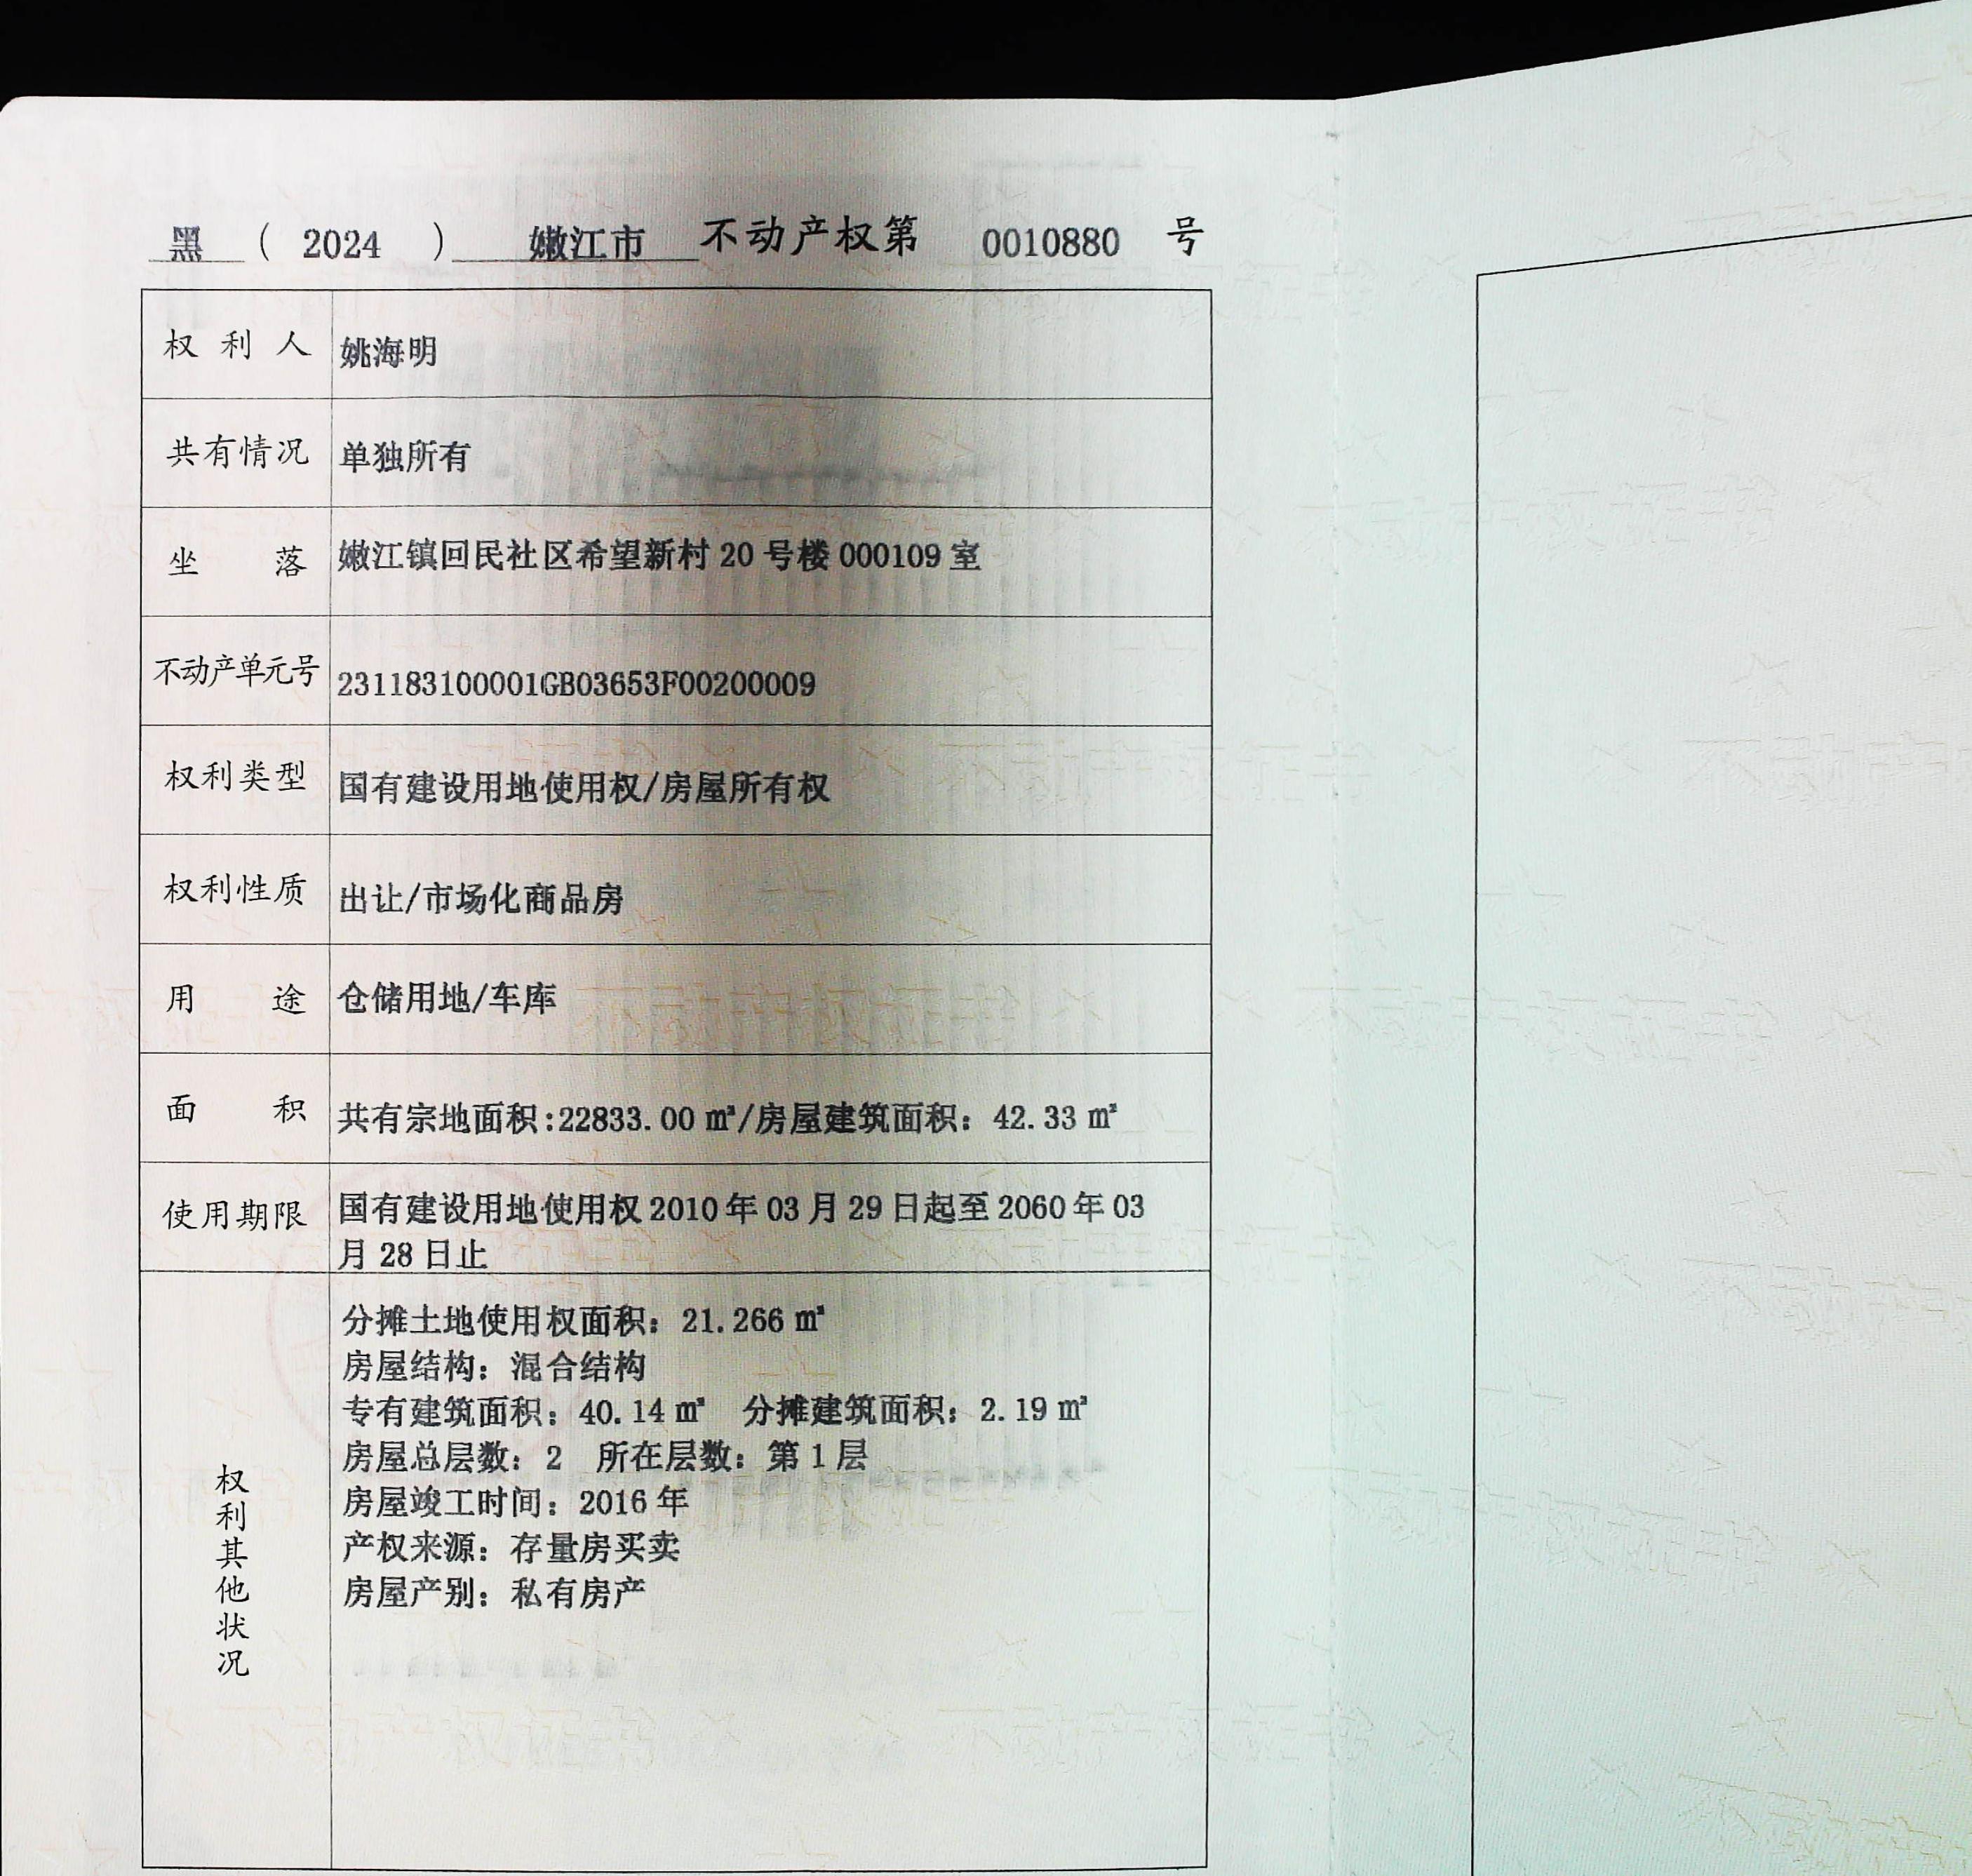 黑 ( 2024 ) 嫩江市 不动产权第 0010880 号
权利人 姚海明
共有情况 单独所有
坐落 嫩江镇回民社区希望新村 20 号楼 000109 室
不动产单元号 231183100001GB03653F00200009
权利类型 国有建设用地使用权/房屋所有权
权利性质 出让/市场化商品房
用途 仓储用地/车库
面积 共有宗地面积:22833.00 ㎡/房屋建筑面积: 42.33 ㎡
使用期限 国有建设用地使用权 2010 年 03 月 29 日起至 2060 年 03
月 28 日止
权利其他状况
分摊土地使用权面积: 21.266 ㎡
房屋结构: 混合结构
专有建筑面积: 40.14 ㎡ 分摊建筑面积: 2.19 ㎡
房屋总层数: 2 所在层数: 第 1 层
房屋竣工时间: 2016 年
产权来源: 存量房买卖
房屋产别: 私有房产